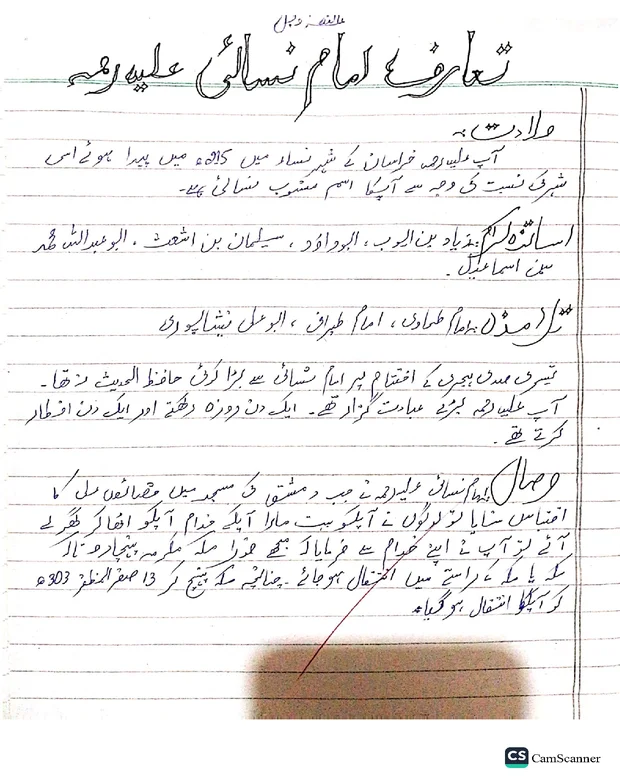 تعارف امام نسائی علیہ رحمہ
ولادت:
آپ علیہ رحمہ خراسان کے شہر نساء میں 215ھ میں پیدا ہوئے اس
شہر کی نسبت کی وجہ سے آپکا اسم منسوب نسائی ہے۔
اساتذہ کرام: زیاد بن ایوب، ابوداؤد، سیلمان بن اشعث، ابو عبداللہ محمد
بن اسماعیل۔
تلامذہ: امام طحاوی، امام طبرانی، ابو علی نیشاپوری
تیسری صدی ہجری کے اختتام پر امام نسائی سے بڑا کوئی حافظ الحدیث نہ تھا۔
آپ علیہ رحمہ بڑے عبادت گزار تھے۔ ایک دن روزہ رکھتے اور ایک دن افطار
کرتے تھے۔
وصال: امام نسائی علیہ رحمہ نے جب دمشق کی مسجد میں خصائص علی کا
اقتباس سنایا تو لوگوں نے آپکو بہت مارا آپکے خدام آپکو اٹھا کر گھر لے
آئے تو آپ نے اپنے خدام سے فرمایا کہ مجھے فوراً مکہ مکرمہ پہنچا دو تاکہ
مکہ یا مکہ کے راستے میں انتقال ہو جائے۔ چنانچہ مکہ پہنچ کر 13 صفر المظفر 303ھ
کو آپکا انتقال ہو گیا۔
CS CamScanner